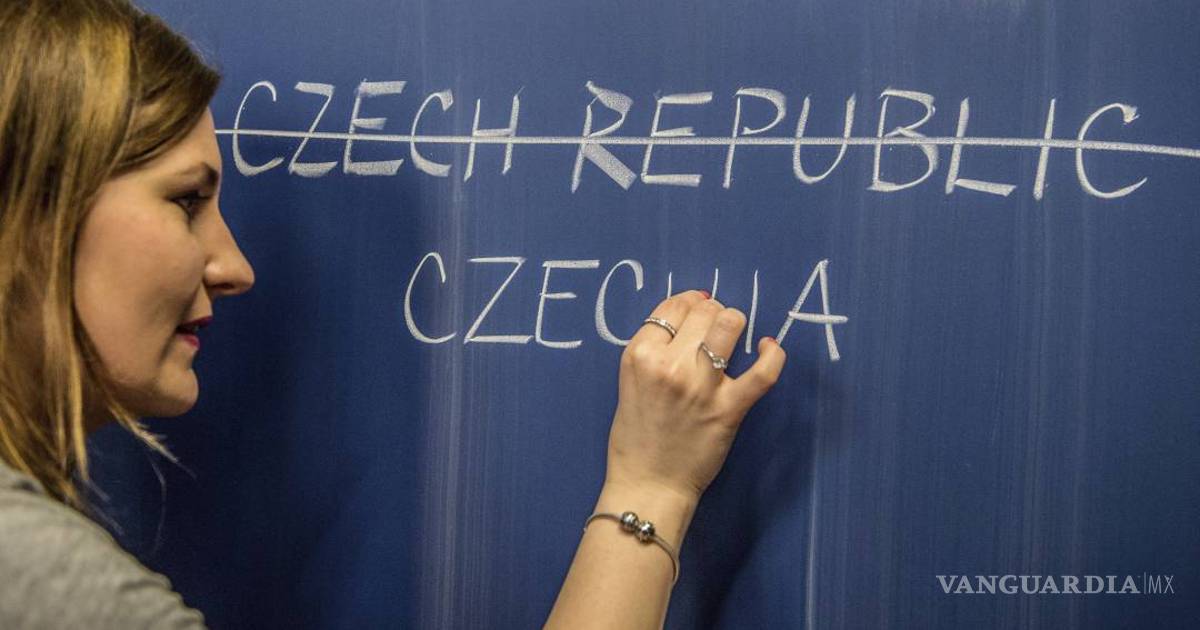 CZECH REPUBLIC
CZECHIA
VANGUARDIA|MX